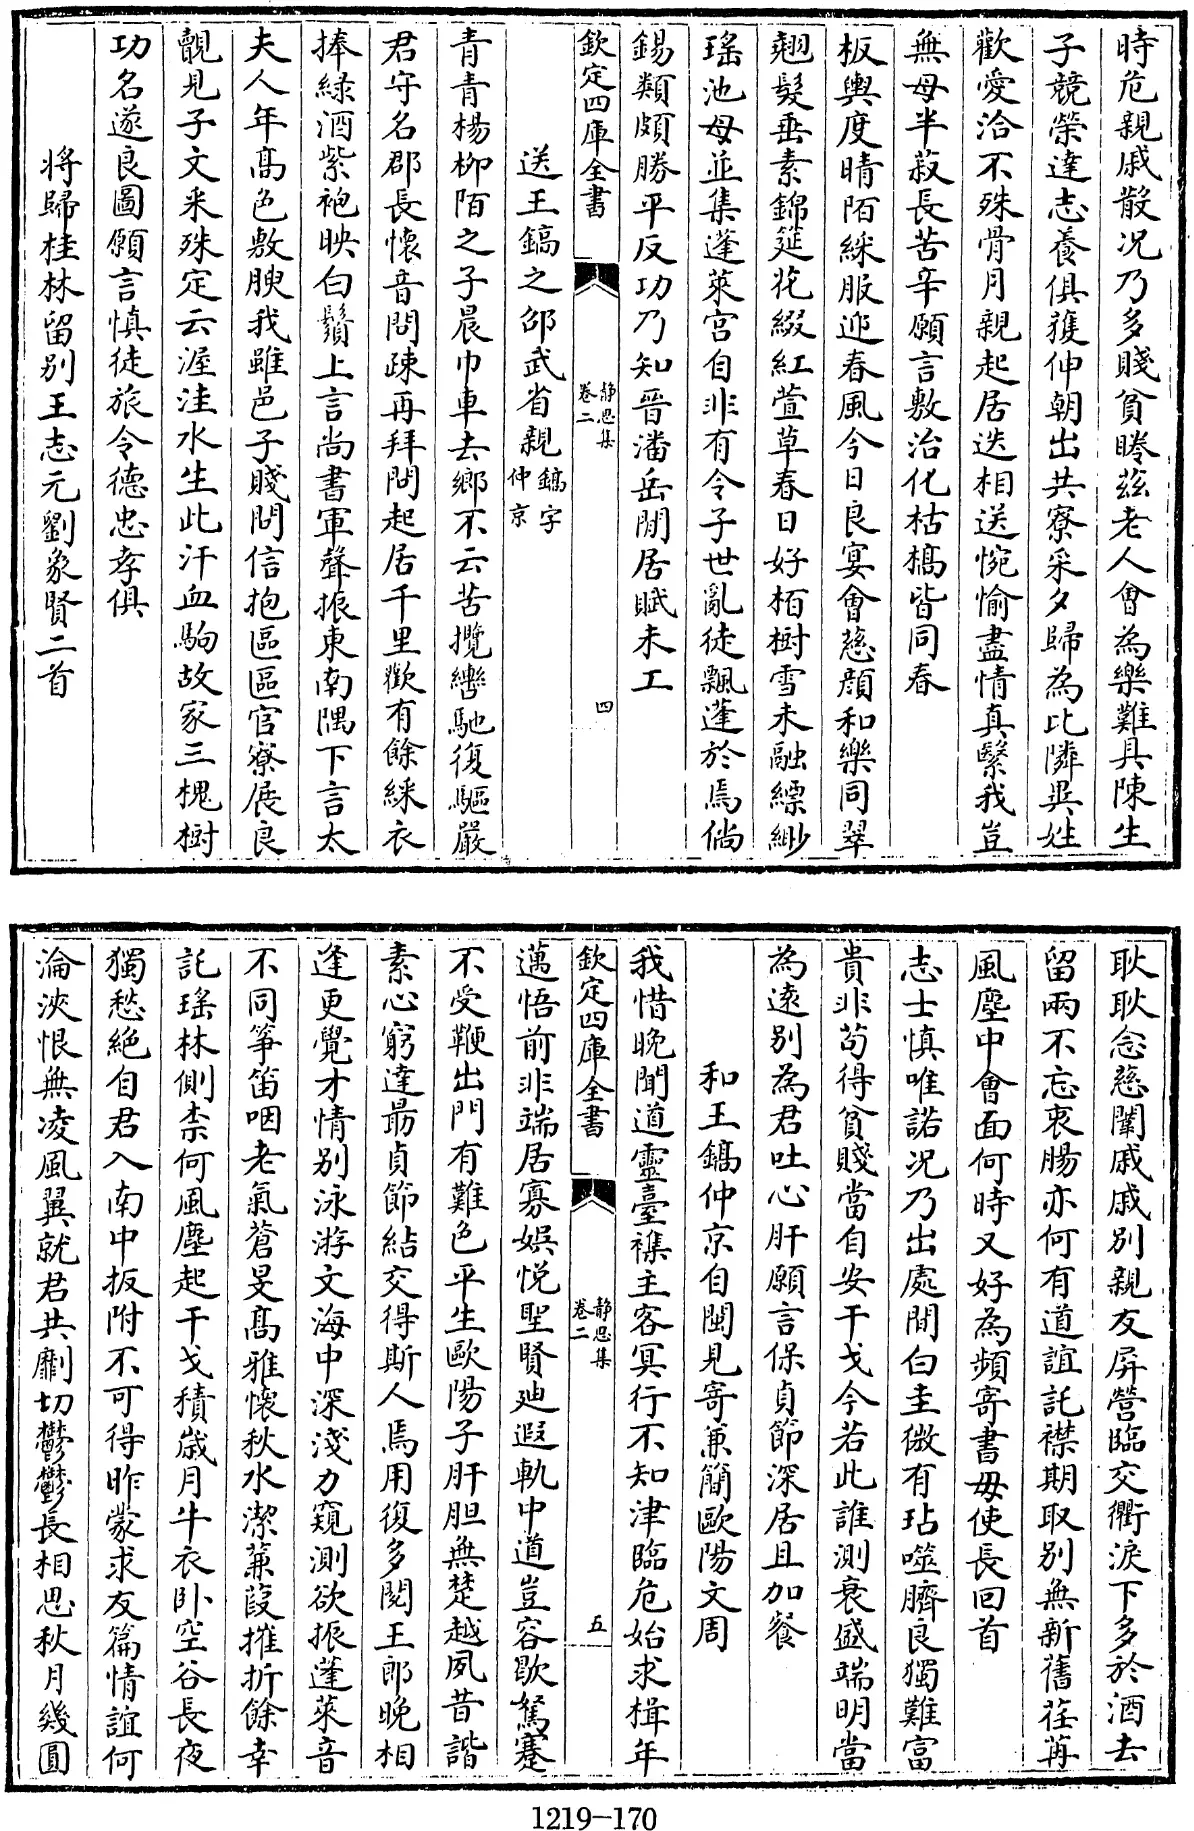 時危親戚散况乃多賤貧睠茲老人會為樂難具陳生
子競榮達志養俱獲伸朝出共寮采夕歸為比隣異姓
歡愛洽不殊骨月親起居迭相送惋愉盡情真繄我豈
無母半菽長苦辛願言敷治化枯槁皆同春
板輿度晴陌綵服迎春風今日良宴會慈顔和樂同翠
翹髮垂素錦筵花綴紅萱草春日好栢樹雪未融縹緲
瑤池母並集蓬萊宮自非有令子世亂徒飄蓬於焉倘
錫類頗勝平反功乃知晉潘岳閒居賦未工
欽定四庫全書
靜思集
卷二
四
送王鎬之邵武省親鎬字仲京
青青楊柳陌之子晨巾車去鄉不云苦攬轡馳復驅嚴
君守名郡長懷音問疎再拜問起居千里歡有餘綵衣
捧緑酒紫袍映白鬚上言尚書軍聲振東南隅下言太
夫人年髙色敷腴我雖邑子賤問信抱區區官寮展良
覿見子文采殊定云渥洼水生此汗血駒故家三槐樹
功名遂良圖願言慎徒旅令德忠孝俱
將歸桂林留别王志元劉象賢二首
耿耿念慈闈戚戚别親友屏營臨交衢淚下多於酒去
留兩不忘衷腸亦何有道誼託襟期取别無新舊荏苒
風塵中會面何時又好為頻寄書毋使長回首
志士慎唯諾况乃出處間白圭微有玷噬臍良獨難富
貴非茍得貧賤當自安干戈今若此誰測衰盛端明當
為遠别為君吐心肝願言保貞節深居且加餐
和王鎬仲京自閩見寄兼簡歐陽文周
我惜晚聞道靈臺襍主客冥行不知津臨危始求楫年
欽定四庫全書
靜思集
卷二
五
邁悟前非端居寡娯悦聖賢廸遐軌中道豈容歇駑蹇
不受鞭出門有難色平生歐陽子肝胆無楚越夙昔諧
素心窮達最貞節結交得斯人焉用復多閱王郎晚相
逢更覺才情别泳游文海中深淺力窺測欲振蓬萊音
不同箏笛咽老氣蒼旻髙雅懷秋水潔蒹葭摧折餘幸
託瑤林側柰何風塵起干戈積歲月牛衣卧空谷長夜
獨愁絶自君入南中扳附不可得昨蒙求友篇情誼何
淪浹恨無凌風翼就君共劘切鬱鬱長相思秋月幾圓
1219-170